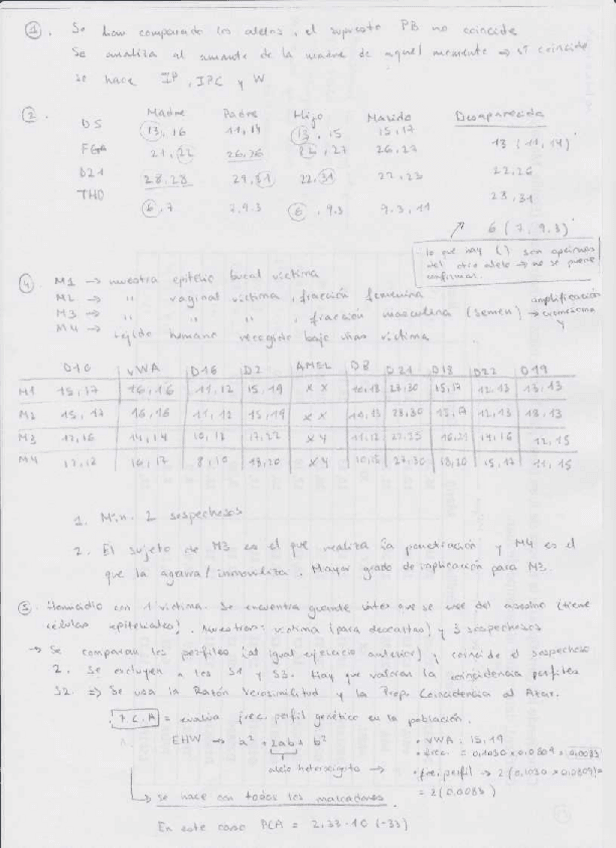 ①. Se han comparado los alelos, el supuesto PB no coincide
Se analiza al amante de la madre de aquel momento → sí coincide
se hace IP, IPC y W
②. Madre Padre Hijo Marido Desaparecida
D5 13, 16 11, 14 13, 15 15, 17 13 (11, 14)
FGA 21, 22 26, 26 22, 27 26, 27 22, 26
D21 28, 28 29, 31 22, 31 22, 23 28, 31
THO 6, 7 7, 9.3 6, 9.3 9.3, 11 6 (7, 9.3)
lo que hay () son opciones
del otro alelo → no se puede
confirmar.
④ M1 → muestra epitelio bucal víctima
M2 → '' vaginal víctima, fracción femenina
M3 → '' '' '', fracción masculina (semen) → amplificación
cromosoma
Y
M4 → tejido humano recogido bajo uñas víctima
D10 vWA D16 D2 AMEL D8 D21 D18 D22 D19
M1 15, 17 16, 16 11, 12 15, 19 x x 10, 13 28, 30 15, 17 12, 13 13, 13
M2 15, 17 16, 16 11, 12 15, 19 x x 10, 13 28, 30 15, 17 12, 13 13, 13
M3 12, 16 14, 14 10, 13 17, 22 x y 11, 12 16, 21 14, 16 12, 15
M4 17, 17 8, 10 18, 20 x y 10, 15 18, 20 15, 17 11, 15
1. Mín. 2 sospechosos
2. El sujeto de M3 es el que realiza la penetración y M4 es el
que la agarra/inmoviliza. Mayor grado de implicación para M3.
⑤. Homicidio con 1 víctima. Se encuentra guante látex que se cree del asesino (tiene
células epiteliales). Muestras: víctima (para descartar) y 3 sospechosos
→ Se comparan los perfiles (al igual ejercicio anterior) y coincide el sospechoso
2. Se excluyen a los S1 y S3. Hay que valorar la coincidencia perfiles
S2. ⇒ Se usa la Razón Verosimilitud y la Prop. Coincidencia al Azar.
P.C.A = evalúa frec. perfil genético en la población.
EHW → a² + 2ab + b²
alelo heterocigoto →
• vWA: 15, 19
• frec. = 0,1030 x 0,0809 = 0,0083
• frec. perfil → 2 (0,1030 x 0,0809) =
= 2 (0,0083)
→ se hace con todos los marcadores.
En este caso PCA = 2,33·10 (-33)